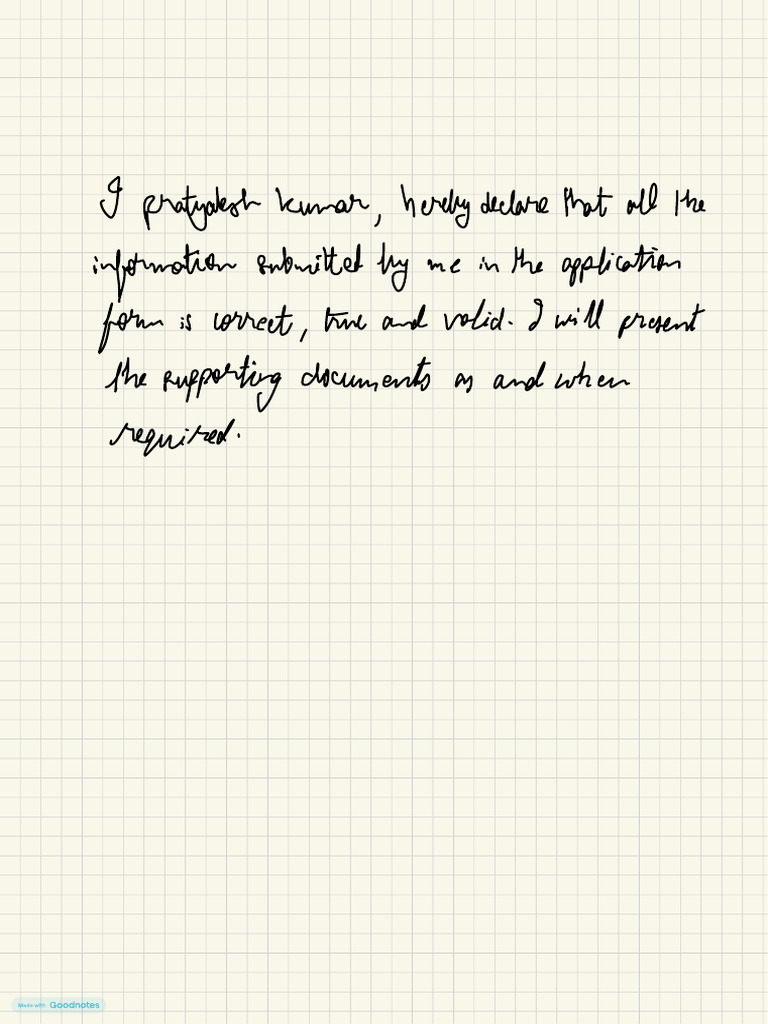 I pratyaksh kumar, hereby declare that all the
information submitted by me in the application
form is correct, true and valid. I will present
the supporting documents as and when
required.
Made with Goodnotes